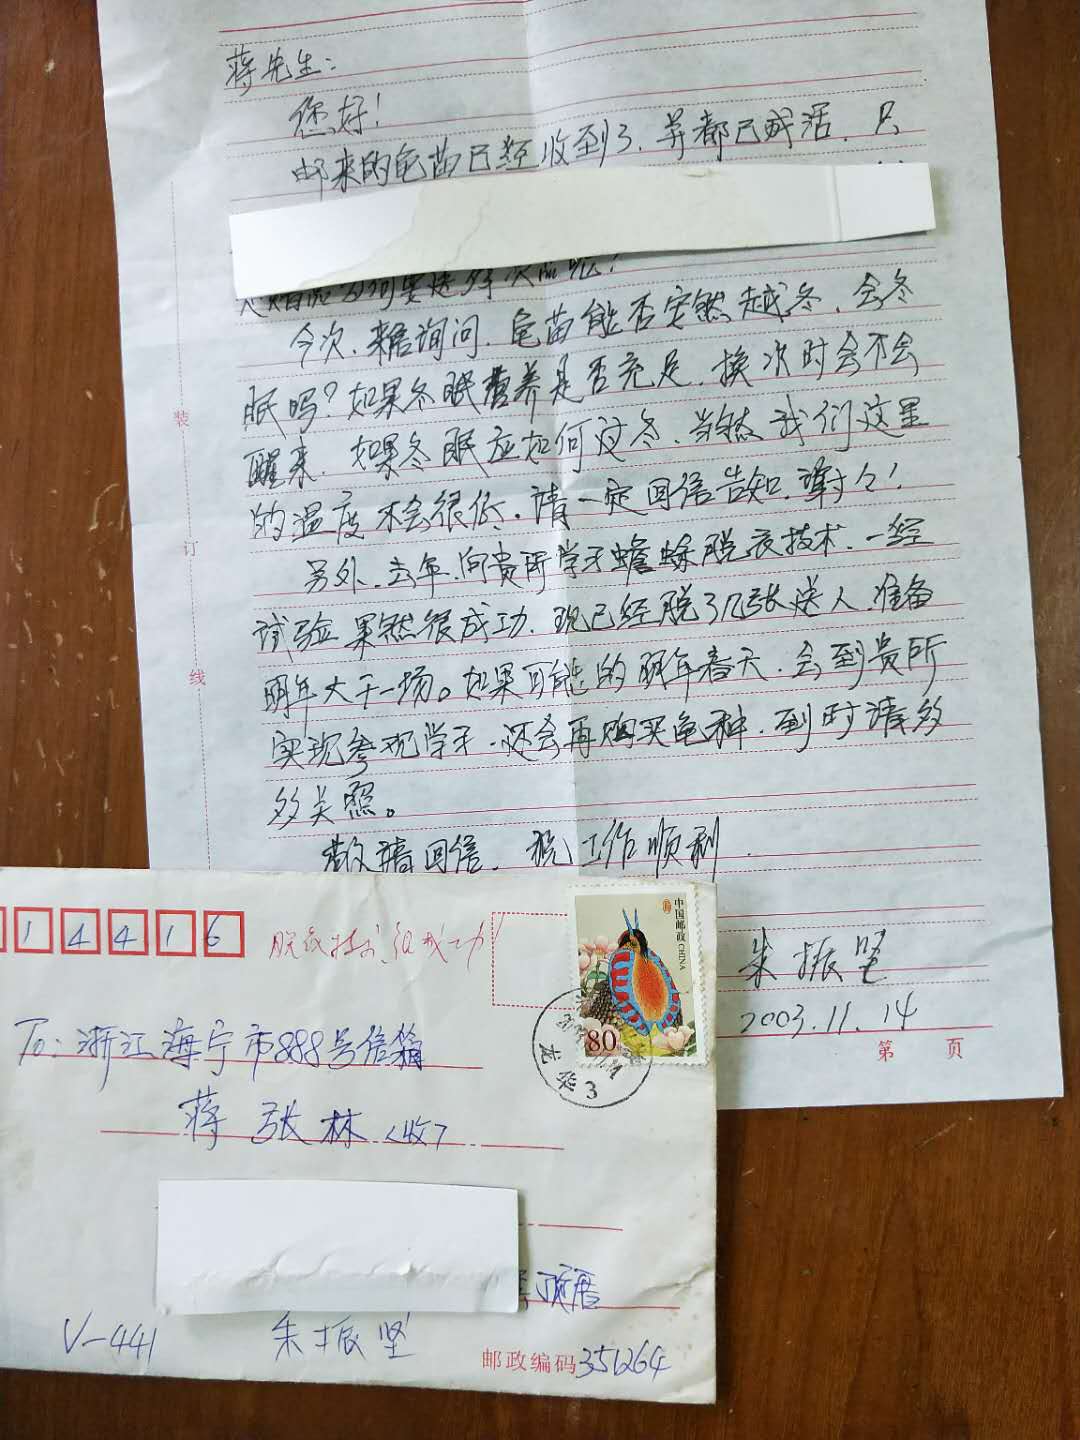 蒋先生:
您好!
邮来的龟苗已经收到了,并都已成活,只
今次,来信询问,龟苗能否安然越冬,会冬
眠吗?如果冬眠营养是否充足,换次时会不会
醒来,如果冬眠应如何过冬,当然我们这里
的温度不会很低。请一定回信告知,谢々!
另外,去年,向贵所学习蟾蜍脱衣技术,一经
试验果然很成功,现已经脱了几张送人,准备
明年大干一场。如果可能的明年春天,会到贵所
实现参观学习,还会再购买龟种,到时请多
多关照。
敬请回信,祝工作顺利.
朱振坚
2003.11.14
第 页
装
订
线
14416
脱衣技术,很成功
中国邮政 CHINA
80
龙华
3
To:浙江海宁市888号信箱
蒋张林<收>
顶厝
V-441 朱振坚
邮政编码351264